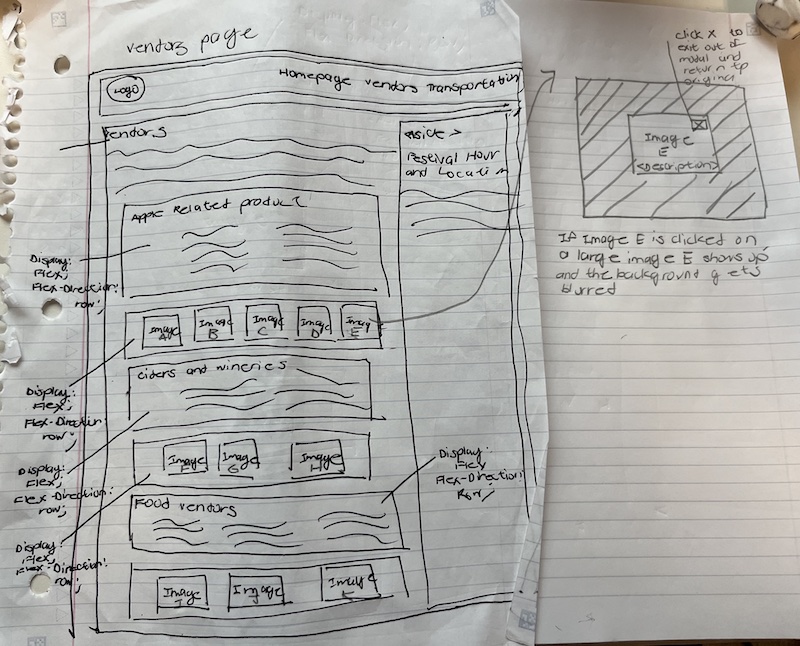 vendors page
Logo
Homepage vendors Transportation
vendors
<Aside>
Festival Hour
and Location
Apple Related product
Display:
Flex;
Flex-Direction:
row;
Image
A
Image
B
Image
C
Image
D
Image
E
ciders and wineries
Display:
Flex;
Flex-Direction
row;
Image
F
Image
G
Image
H
Display:
Flex;
Flex-Direction:
row;
Display:
Flex
Flex-Direction:
Row;
Food vendors
Display:
Flex;
Flex-Direction:
row;
Image
I
Image
J
Image
click X to
exit out of
modal and
return to
original
X
Image
E
<Description>
If Image E is clicked on
a large image E shows up
and the background gets
blurred